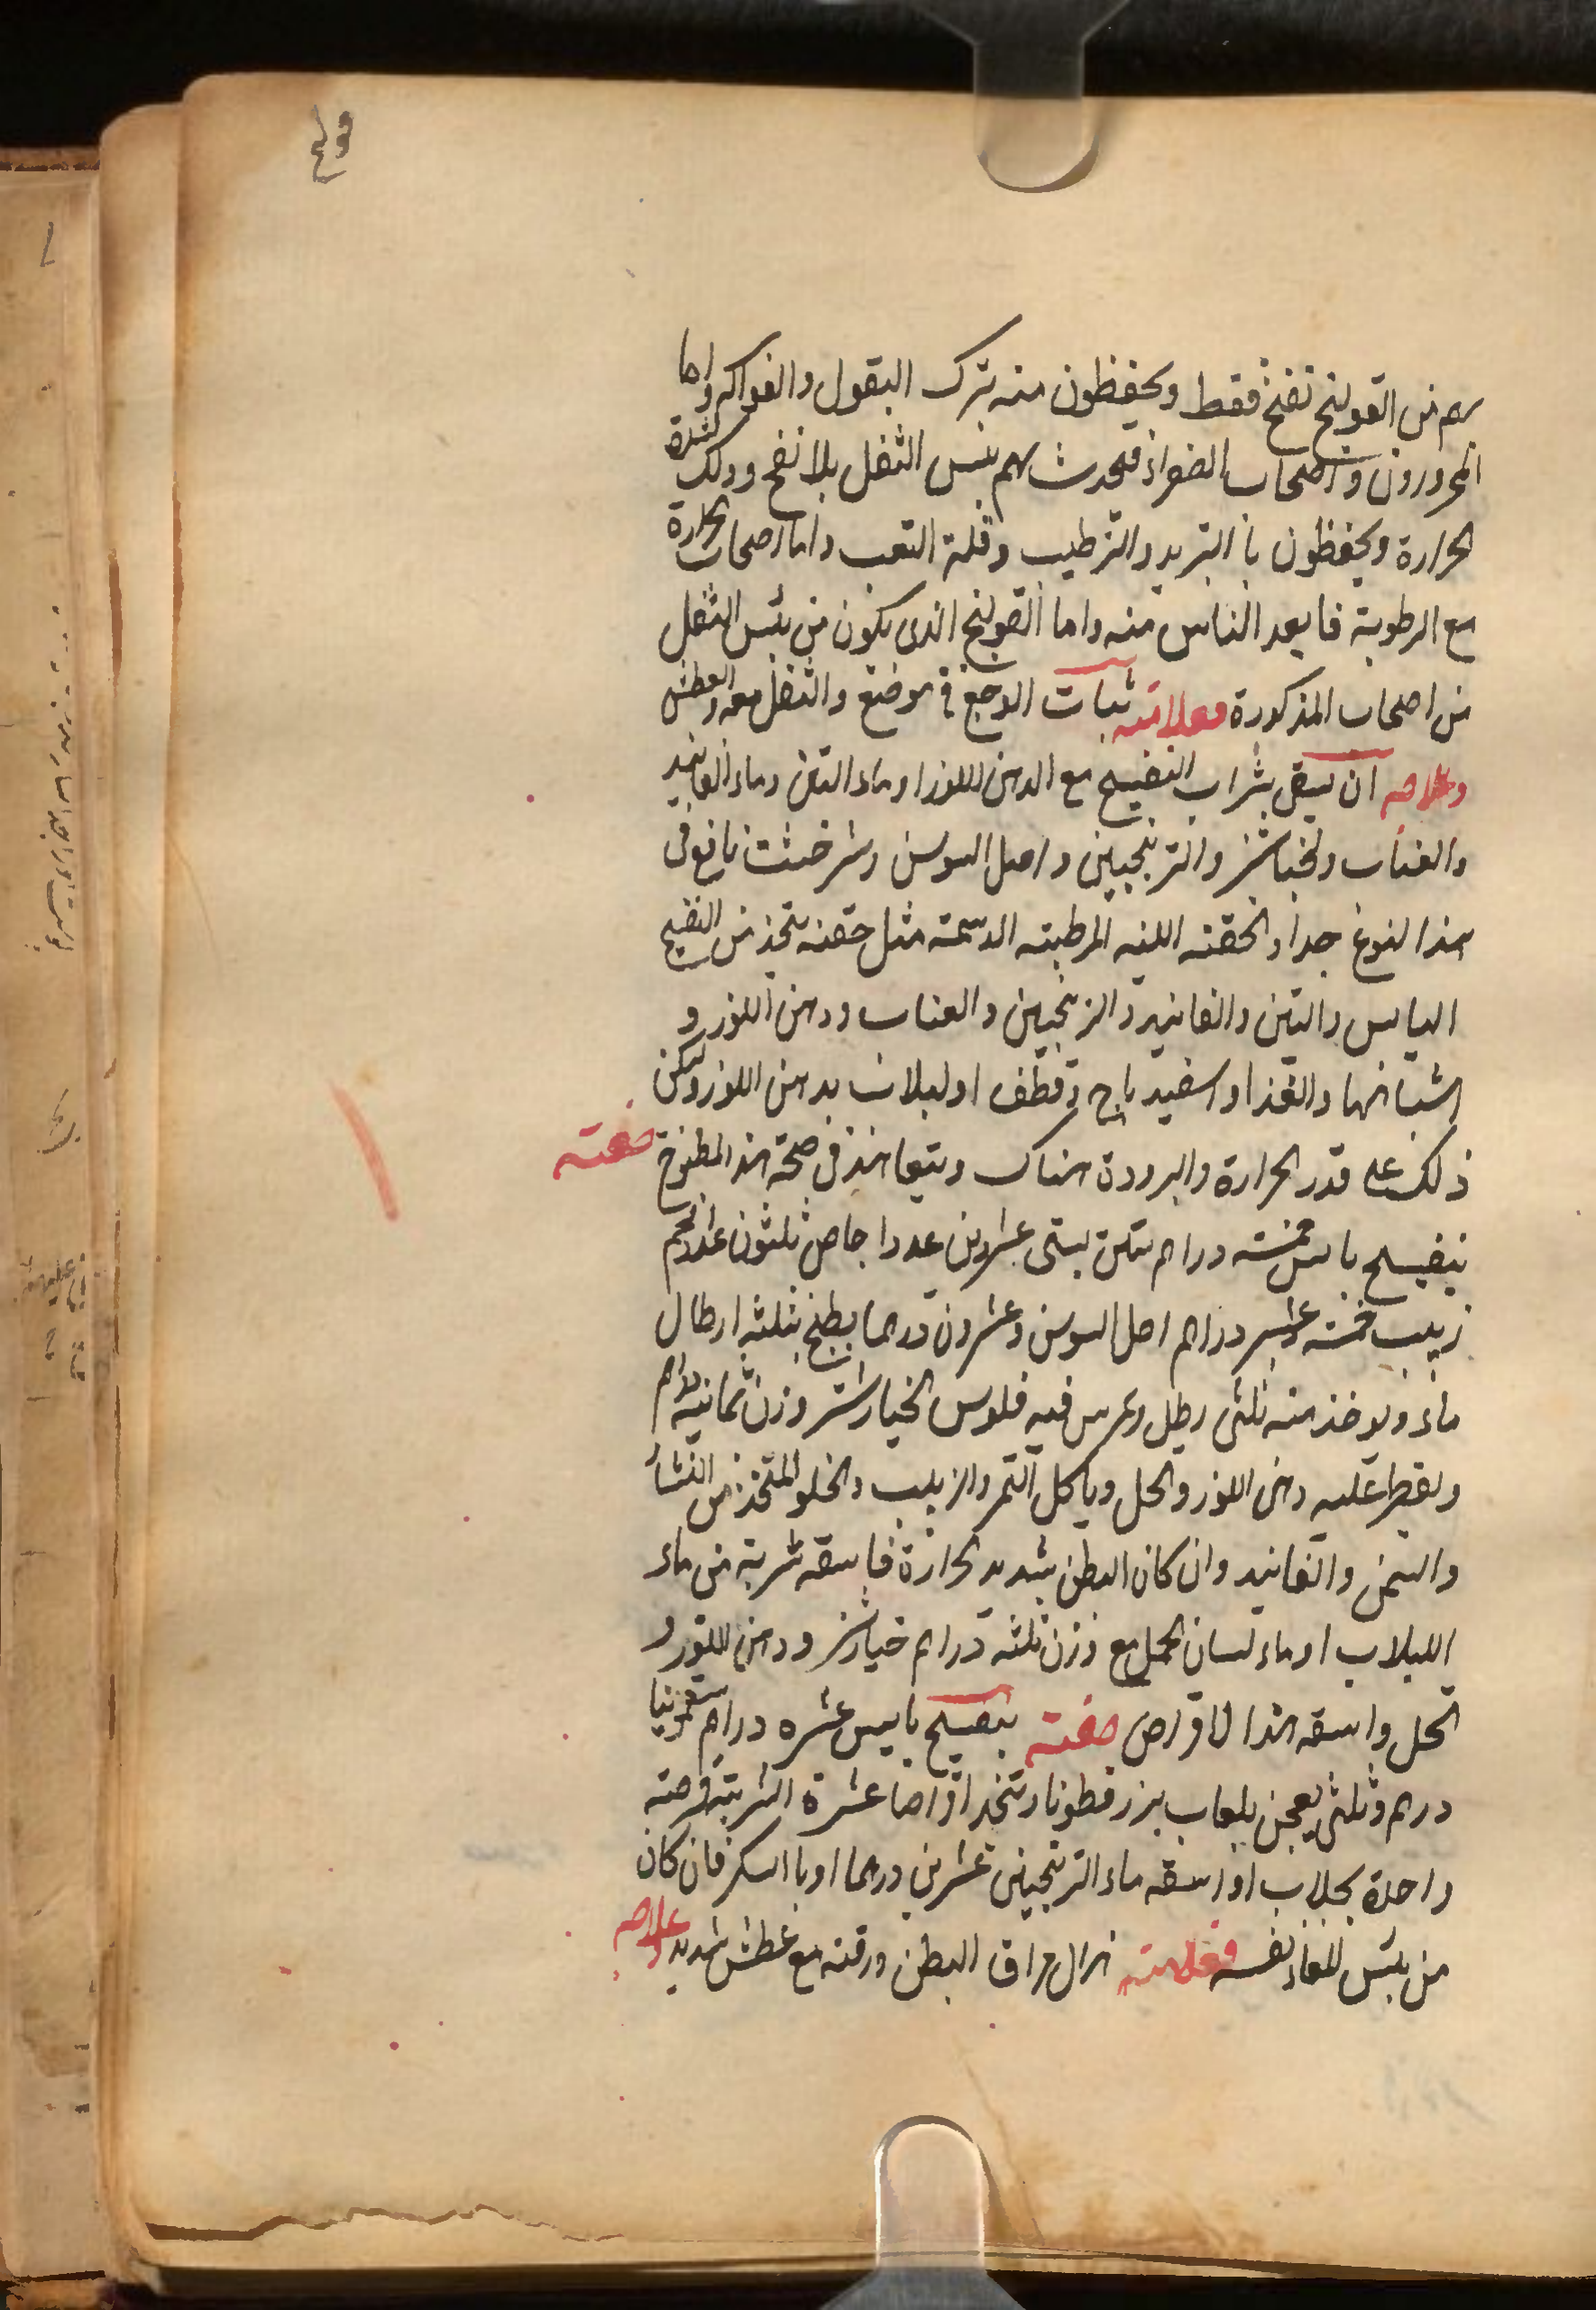 قولنج
بهم من القولنج نفخ فقط ويحفظون منه بترك البقول والفواكه واما
المحرورون واصحاب الصفراء فيحدث بهم يبس الثفل بلا نفخ وذلك لشدة
الحرارة ويحفظون با التبريد والترطيب وقلة التعب واما اصحاب الحرارة
مع الرطوبة فابعد الناس منه واما القولنج الذى يكون من يبس الثفل
من اصحاب المذكورة فعلامته ثبات الوجع فى موضع والثفل معه والعطش
وعلاجه ان يسقى بشراب البنفسج مع الدهن اللوز او ماء التين وماء الفانيد
والعناب والخيارشنبر والترنجبين واصل السوسن وشرخشت نافع فى
هذا النوع جدا والحقنه اللينه المرطبته الدسمته مثل حقنه يتخذ من البنفسج
اليابس والتين والفانيد والترنجبين والعناب ودهن اللوز و
اشباهها والغذاء اسفيدباج وقطف او لبلاب بدهن اللوز وليكن
ذلك على قدر الحرارة والبرودة هناك ويتعاهد فى صحة هذا المطبوخ صفته
بنفسج يابس خمسته دراهم تين بستى عشرين عددا اجاص ثلثون عددا لحم
زبيب خمسته عشر دراهم اصل السوسن وعشرون درهما يطبخ بثلثه ارطال
ماء ويوخذ منه ثلثى رطل ويمرس فيه فلوس الخيارشنبر وزن ثمانيه دراهم
ويقطر عليه دهن اللوز والحل وياكل التمر والزبيب والحلو المتخذ من النشا
والسمن والفانيد وان كان البطن شديد الحرارة فاسقه شربة من ماء
اللبلاب او ماء لسان الحمل مع وزن ثلثه دراهم خيارشنبر ودهن اللوز و
الحل واسقه هذا الاقراص صفته بنفسج يابس عشره دراهم سقمونيا
درهم وثلثى يعجن بلعاب بزرقطونا ويتخذ اقراصا عشرة الشربة قرصته
واحدة بجلاب او اسقه ماء الترنجبين عشرين درهما او با السكر فان كان
من يبس المعاء نفسه فعلامته هزال مراق البطن ورقته مع عطش شديد وعلاجه